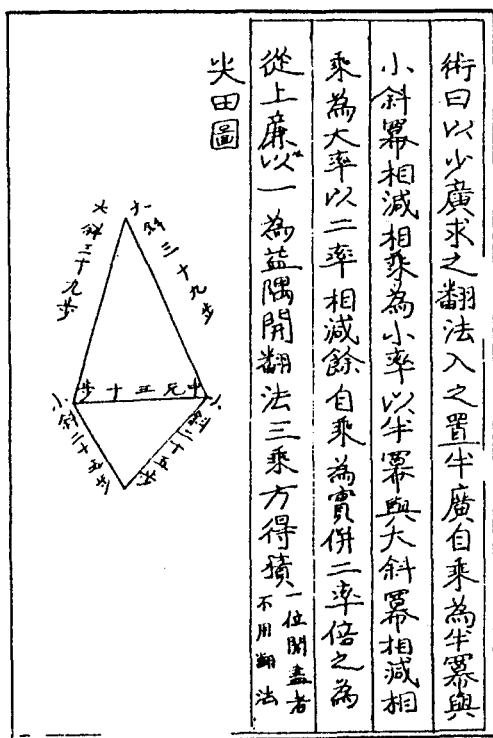 術曰以少廣求之翻法入之置半廣自乘為半冪與
小斜冪相減相乘為小率以半冪與大斜冪相減相
乘為大率以二率相減餘自乘為實併二率倍之為
從上廉以一為益隅開翻法三乘方得積
一位開盡者
不用翻法
尖田圖
大斜三十九步
大斜三十九步
中廣三十步
小斜二十五步
小斜二十五步